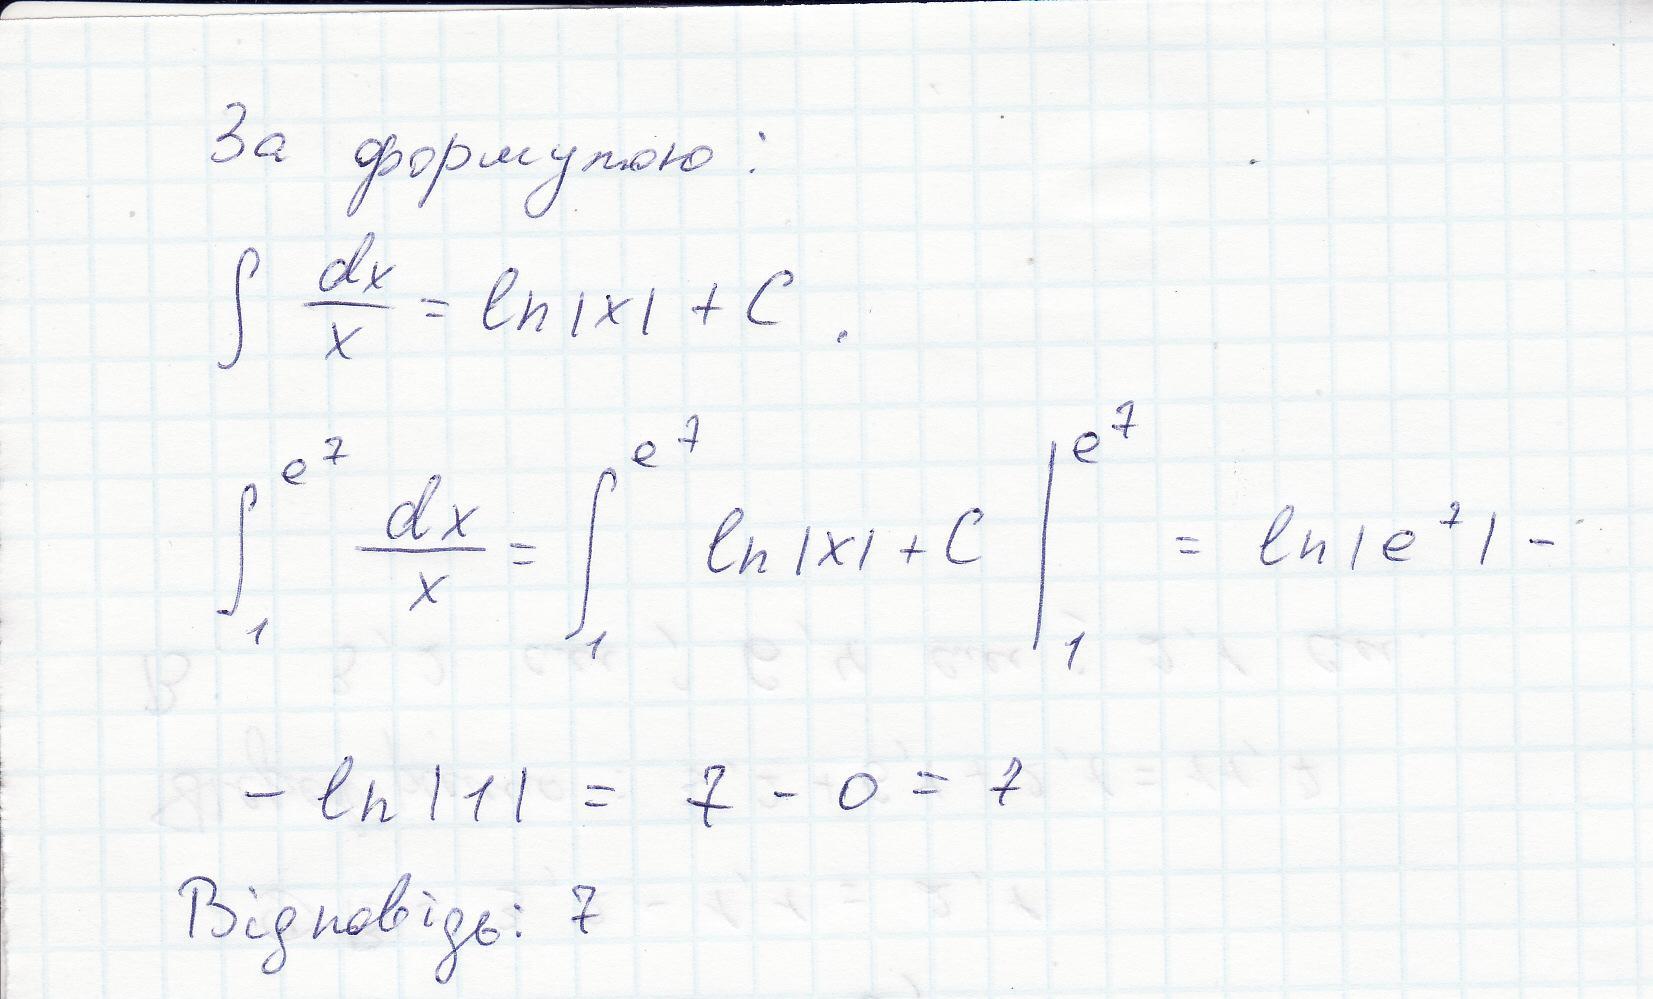 За формулою:
∫ dx/x = ln|x| + C.
∫₁^(e⁷) dx/x = ∫₁^(e⁷) ln|x| + C |₁^(e⁷) = ln|e⁷| -
- ln|1| = 7 - 0 = 7
Відповідь: 7